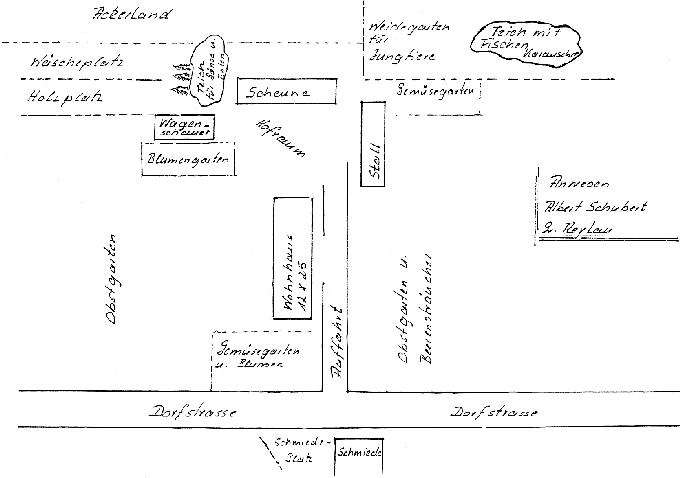 Ackerland
Wäscheplatz
Holzplatz
Teich
für Gänse u.
Enten
Scheune
Weidegarten
für
Jungtiere
Teich mit
Fischen
Karauschen
Gemüsegarten
Wagen-
schauer
Blumengarten
Hofraum
Stall
Anwesen
Albert Schubert
Obstgarten
Wohnhaus
12 x 25
Obstgarten u.
Beerensträucher
Gemüsegarten
u. Blumen
Auffahrt
Dorfstrasse
Dorfstrasse
Schmiede-
Platz
Schmiede